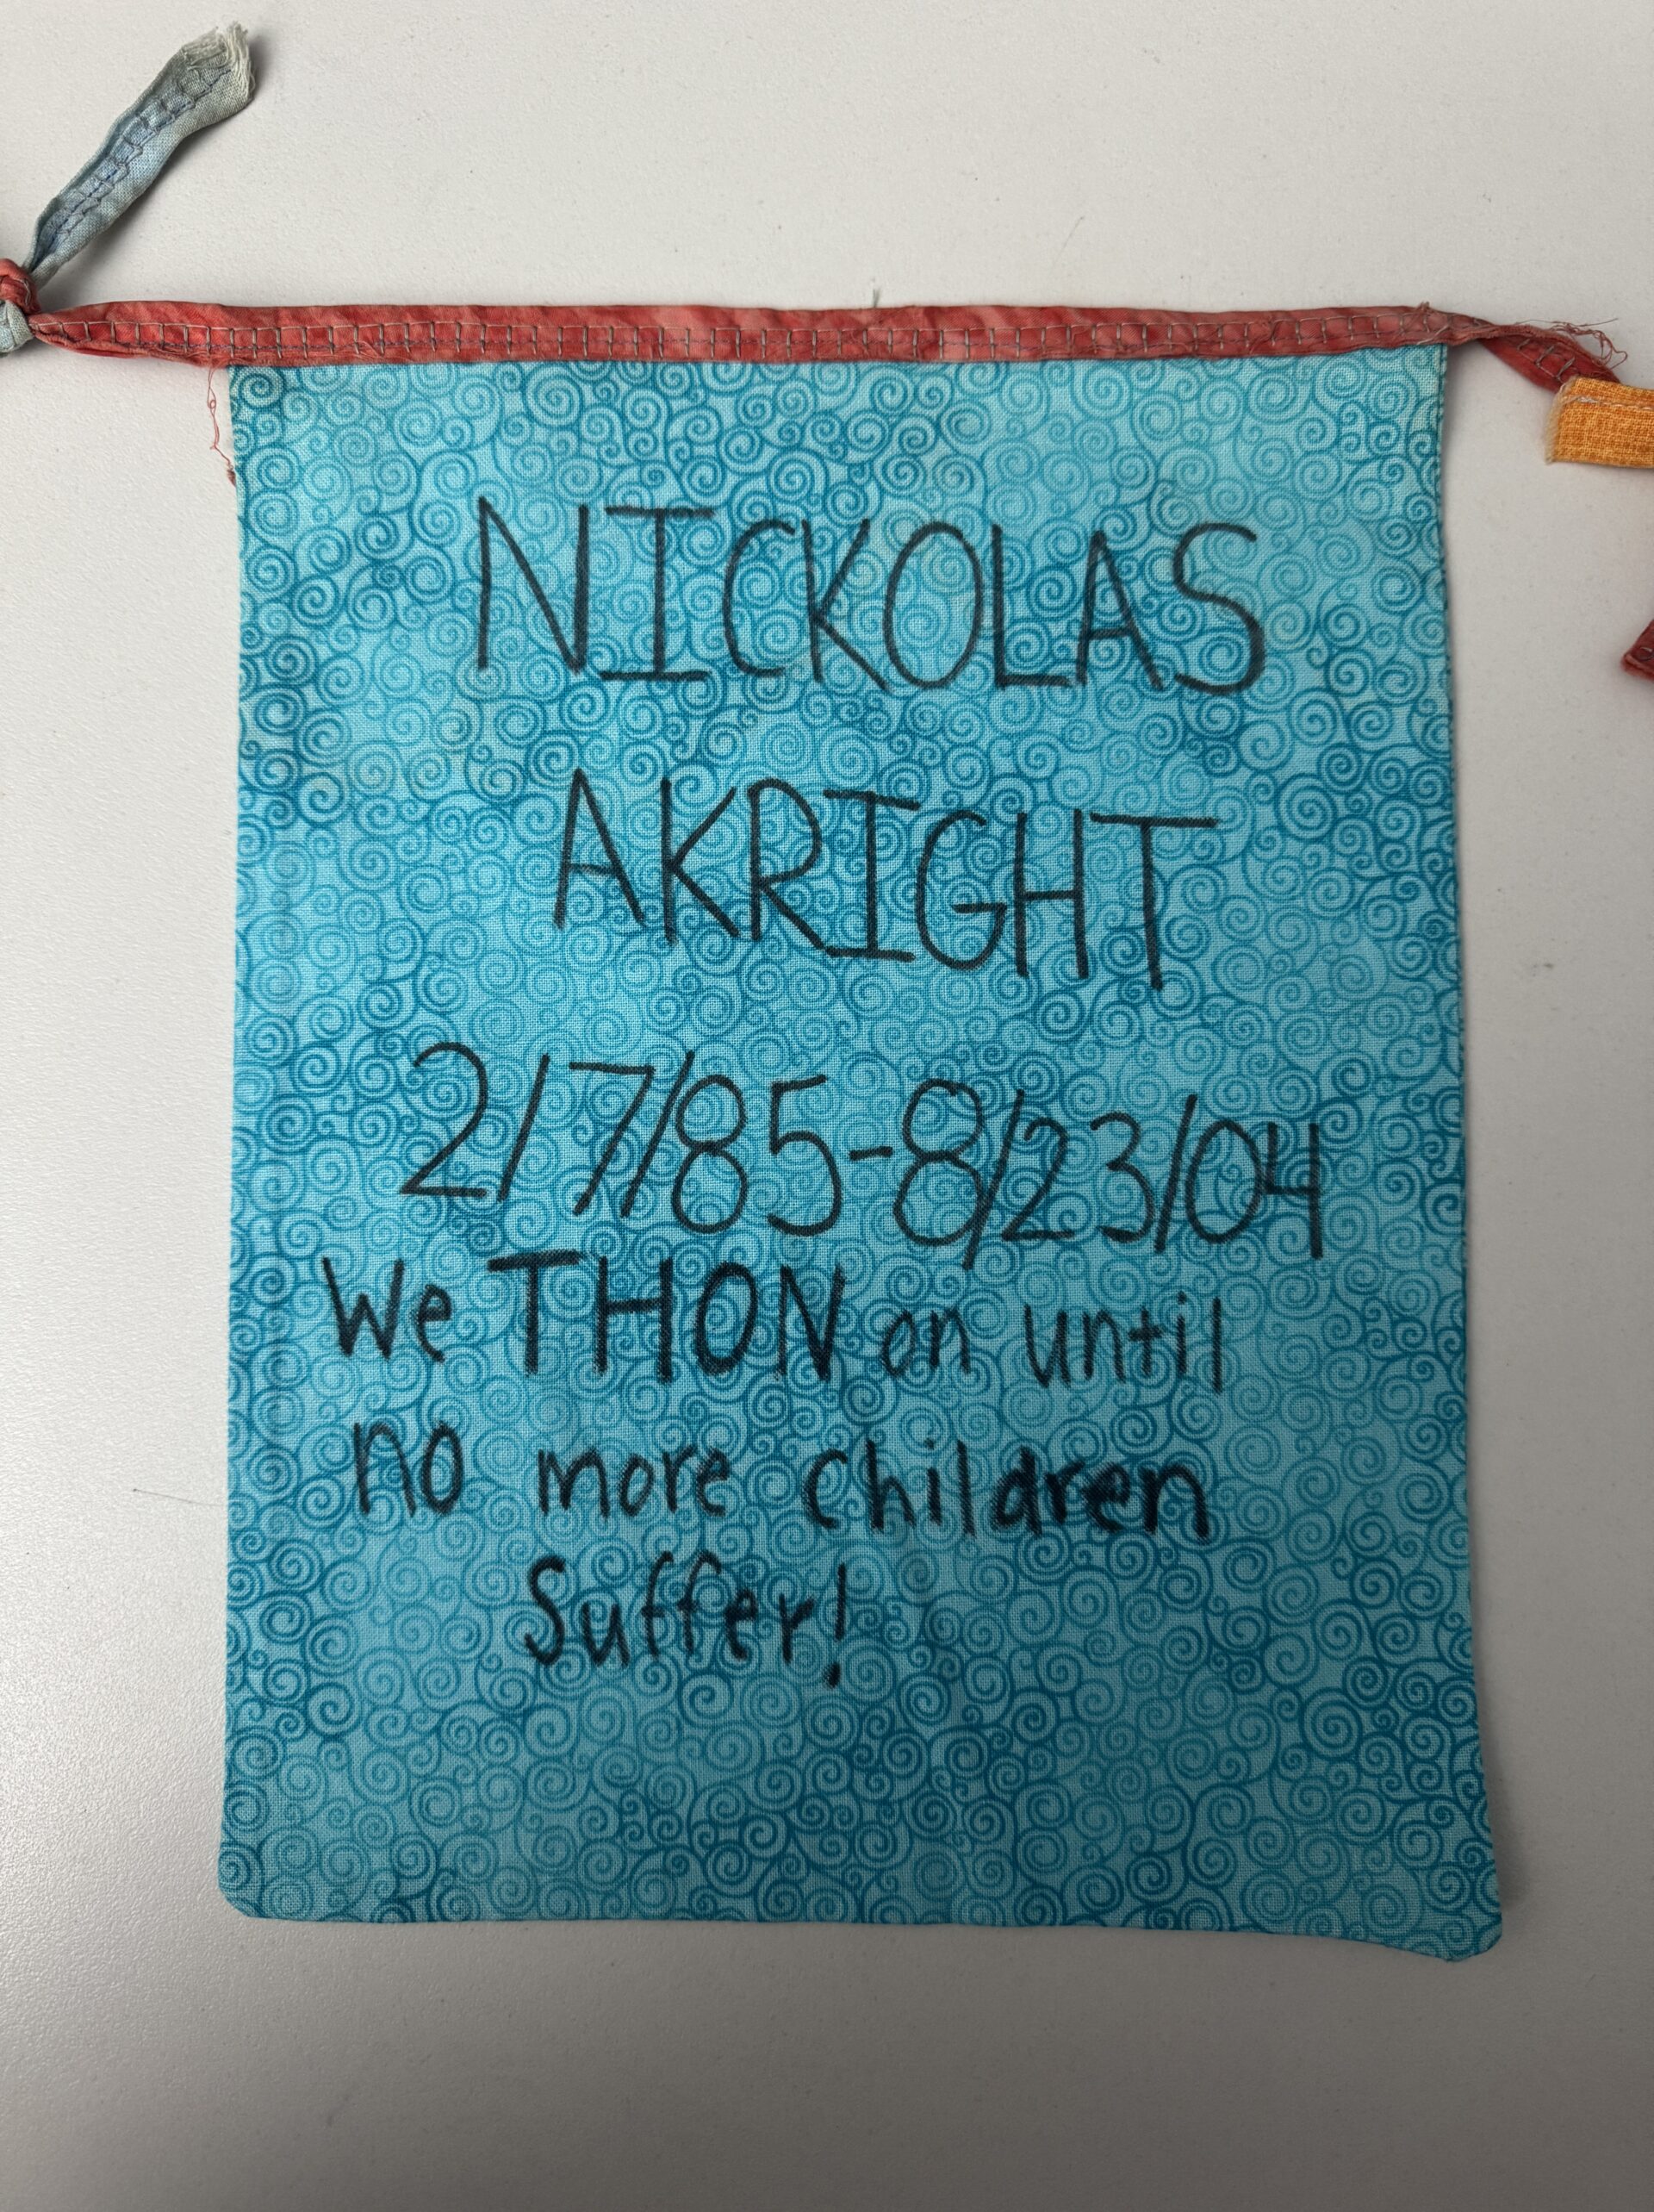 NICKOLAS
AKRIGHT
2/7/85-8/23/04
We THON on until
no more children
Suffer!